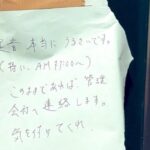 音 本当に うるさいです。
(特に、AM 11:00へ)
このままであれば、管理
会社へ連絡します。
気を付けてくれ